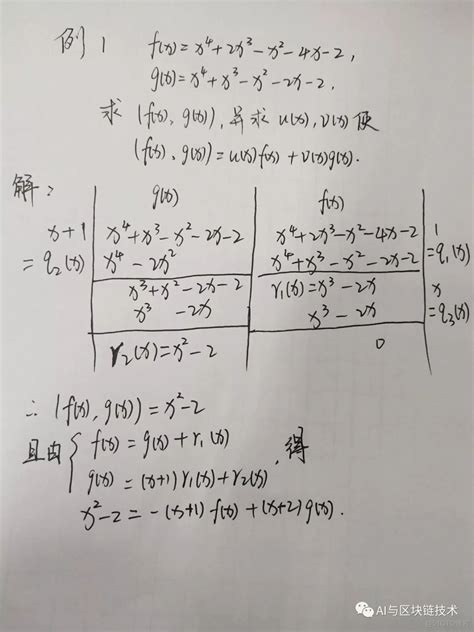 例1 f(x)=x⁴+2x³-x²-4x-2,
g(x)=x⁴+x³-x²-2x-2,
求(f(x), g(x)), 并求u(x), v(x)使
(f(x), g(x))=u(x)f(x)+v(x)g(x).
解:
g(x) f(x)
x+1 x⁴+x³-x²-2x-2 x⁴+2x³-x²-4x-2 1
=q₂(x) x⁴-2x² x⁴+x³-x²-2x-2 =q₁(x)
x³+x²-2x-2 r₁(x)=x³-2x x
x³ -2x x³-2x =q₃(x)
r₂(x)=x²-2 0
∴(f(x), g(x))=x²-2
且由{f(x)=g(x)+r₁(x)
g(x)=(x+1)r₁(x)+r₂(x), 得
x²-2=-(x+1)f(x)+(x+2)g(x).
AI与区块链技术